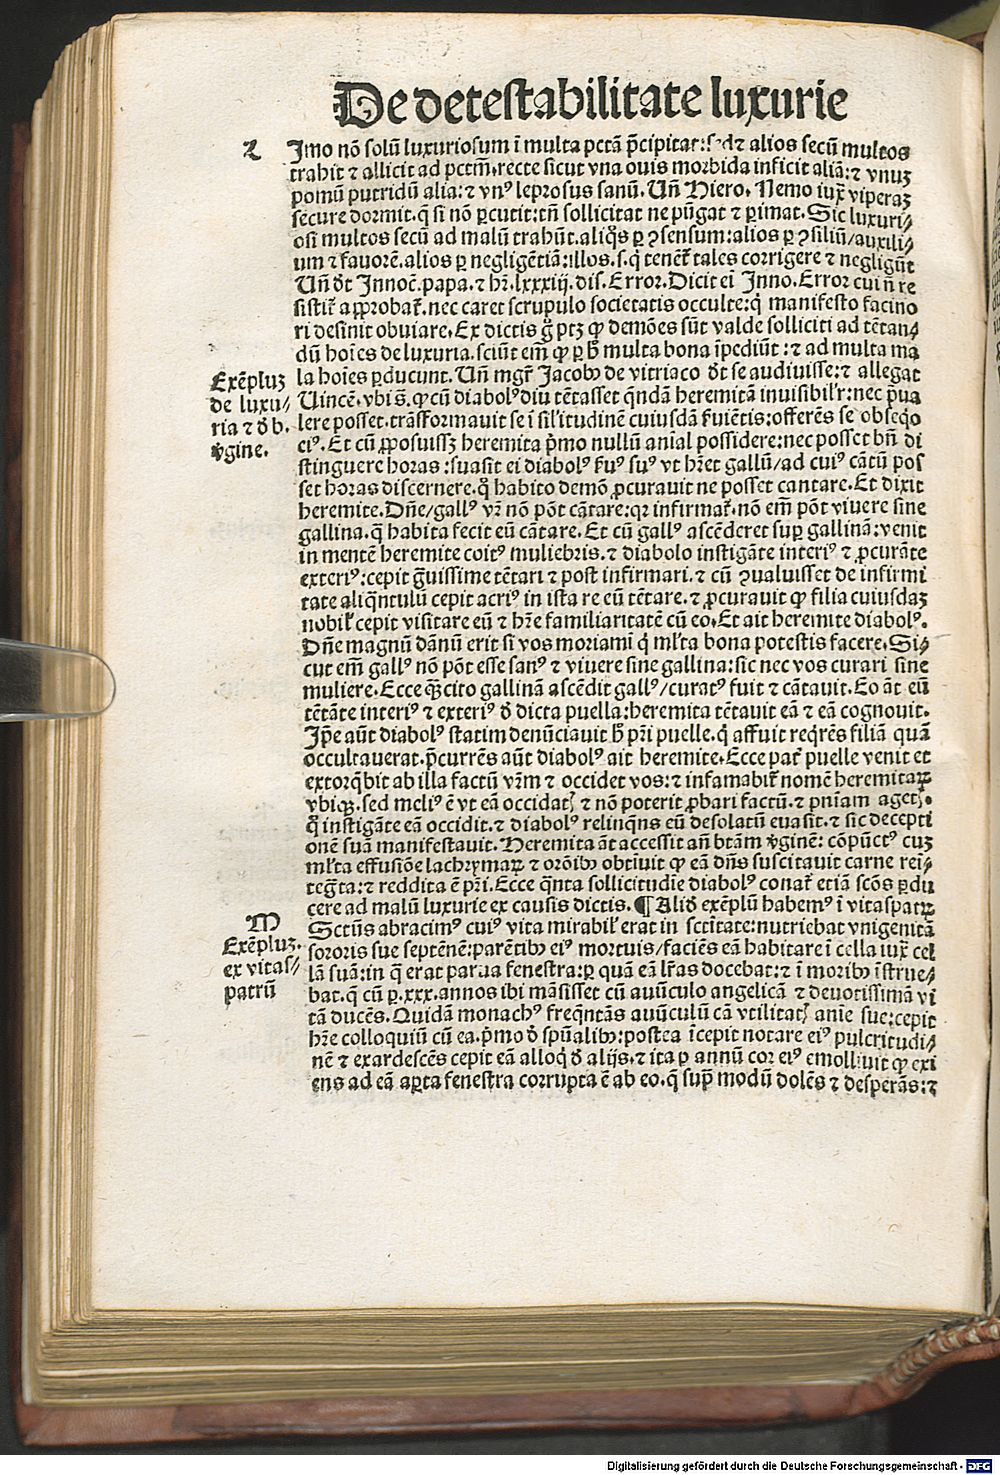 De detestabilitate luxurie
L
Imo nõ solũ luxuriosum ĩ multa pctã p̃cipitat: sed⁊ alios secũ multos
trahit ⁊ allicit ad pctm̃. recte sicut vna ouis morbida inficit aliã: ⁊ vnuꝫ
pomũ putridũ alia: ⁊ vnꝰ leprosus sanũ. Uñ Hiero. Nemo iux̃ viperaꝫ
secure dormit. q̃ si nõ ꝑcutit: tñ sollicitat ne pũgat ⁊ ꝑimat. Sic luxuri⸗
osi multos secũ ad malũ trahũt. aliq̃s ꝑ ꝯsensum: alios ꝑ ꝯsiliũ/ auxili⸗
um ⁊ fauorẽ. alios ꝑ negligẽtiã: illos .s. q̇ tenẽt̃ tales corrigere ⁊ negligũt
Uñ d̃t Innocẽ. papa. ⁊ hr̃. lxxxiij. dis. Error. Dicit eĩ Inno. Error cui ñ re
sistit̃ aꝓbat̃. nec caret scrupulo societatis occulte: q̇ manifesto facino
ri desinit obuiare. Ex dictis g̃ ptꝫ ꝙ demões sũt valde solliciti ad tẽtan⸗
dũ hoĩes de luxuria. sciũt em̃ ꝙ ꝑ h̃ multa bona ĩpediũt: ⁊ ad multa ma
la hoĩes ꝑducunt. Uñ mgr̃ Jacobꝰ de vitriaco d̃t se audiuisse: ⁊ allegat
Uincẽ. vbi s̃. ꝙ cũ diabolꝰ diu tẽtasset q̃ndã heremitã inuisibilr̃: nec p̃ua
lere posset. trãsformauit se ĩ sil'itudinẽ cuiusdã f̃uiẽtis: offerẽs se obseq̇o
eiꝰ. Et cũ ꝓposuissꝫ heremita p̃mo nullũ anĩal possidere: nec posset bñ di
stinguere horas: suasit ei diabolꝰ f̃uꝰ suꝰ vt hr̃et gallũ/ ad cuiꝰ cãtũ pos
set horas discernere. q̃ habito demõ ꝓcurauit ne posset cantare. Et dixit
heremite. Dñe/ gallꝰ vr̃ nõ põt cãtare: qꝛ infirmat̃. nõ em̃ põt viuere sine
gallina. q̃ habita fecit eũ cãtare. Et cũ gallꝰ ascẽderet suꝑ gallinã: venit
in mentẽ heremite coitꝰ muliebris. ⁊ diabolo instigãte interiꝰ ⁊ ꝓcurãte
exteriꝰ: cepit g̃uissime tẽtari ⁊ post infirmari. ⁊ cũ ꝯualuisset de infirmi
tate aliq̃ntulũ cepit acriꝰ in ista re eũ tẽtare. ⁊ ꝓcurauit ꝙ filia cuiusdaꝫ
nobil̃ cepit visitare eũ ⁊ hr̃e familiaritatẽ cũ eo. Et ait heremite diabolꝰ.
Dñe magnũ dãnũ erit si vos moriami q̇ ml'ta bona potestis facere. Si⸗
cut em̃ gallꝰ nõ põt esse sanꝰ ⁊ viuere sine gallina: sic nec vos curari sine
muliere. Ecce q̃ cito gallinã ascẽdit gallꝰ/ curatꝰ fuit ⁊ cãtauit. Eo ãt eũ
tẽtãte interiꝰ ⁊ exteriꝰ d̃ dicta puella: heremita tẽtauit eã ⁊ eã cognouit.
Ip̃e aũt diabolꝰ statim denũciauit h̃ pr̃i puelle. q̇ affuit req̇rẽs filiã quã
occultauerat. p̃currẽs aũt diabolꝰ ait heremite. Ecce pat̃ puelle venit et
extorq̃bit ab illa factũ vr̃m ⁊ occidet vos: ⁊ infamabit̃ nomẽ heremitaꝝ
vbiqꝫ. sed meliꝰ ẽ vt eã occidat⁊ ⁊ nõ poterit ꝓbari factũ. ⁊ pñiam aget⁊.
q̃ instigãte eã occidit. ⁊ diabolꝰ relinq̃ns eũ desolatũ euasit. ⁊ sic decepti
onẽ suã manifestauit. Heremita ãt accessit añ btãm v̇ginẽ: cõpũctꝰ cuꝫ
ml'ta effusiõe lachrymaꝝ ⁊ orõibꝰ obtĩuit ꝙ eã dñs suscitauit carne reĩ⸗
teg̃ta: ⁊ reddita ẽ pr̃i. Ecce q̃nta sollicitudĩe diabolꝰ conat̃ etiã scõs ꝑdu
cere ad malũ luxurie ex causis dictis. ¶ Aliđ exẽplũ habemꝰ ĩ vitaspatꝝ
Sctũs abracimꝰ cuiꝰ vita mirabil̃ erat in sctĩtate: nutriebat vnigenitã
sororis sue septẽnẽ: parẽtibꝰ eiꝰ mortuis/ faciẽs eã habitare ĩ cella iux̃ cel
lã suã: in q̃ erat parua fenestra: ꝑ quã eã lr̃as docebat: ⁊ ĩ moribꝰ ĩstrue⸗
bat. q̃ cũ ꝑ .xxx. annos ibi mãsisset cũ auũculo angelicã ⁊ deuotissimã vi
tã ducẽs. Quidã monachꝰ freq̃ntãs auũculũ cã vtilitat⁊ anĩe sue: cepit
hr̃e colloquiũ cũ ea. p̃mo d̃ spũalibꝰ: postea ĩcepit notare eiꝰ pulcritudi⸗
nẽ ⁊ exardescẽs cepit eã alloq̇ d̃ alijs. ⁊ ita ꝑ annũ cor eiꝰ emolliuit ꝙ exi
ens ad eã aꝑta fenestra corrupta ẽ ab eo. q̃ sup̃ modũ dolẽs ⁊ desperãs: ⁊
Exẽpluꝫ
de luxu⸗
ria ⁊ d̃ b.
v̇gine.
M
Exẽpluꝫ.
ex vitas⸗
patrũ
Digitalisierung gefördert durch die Deutsche Forschungsgemeinschaft - DFG